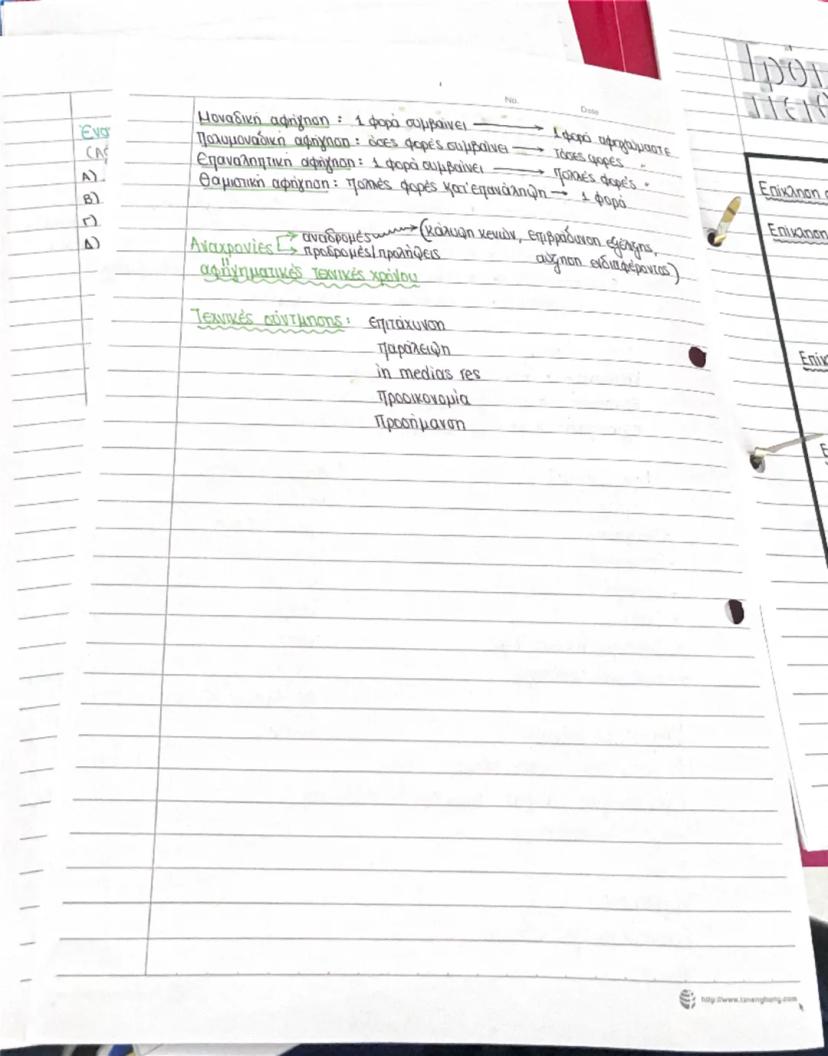 No.
Date
Μοναδική αφήγηση : 1 φορά συμβαίνει → 1 φορά αφηγούμαστε
Πολυμοναδική αφήγηση : όσες φορές συμβαίνει → τόσες φορές "
Επαναληπτική αφήγηση : 1 φορά συμβαίνει → πολλές φορές "
Θαμιστική αφήγηση : πολλές φορές κατ' επανάληψη → 1 φορά
Αναχρονίες → αναδρομές → (κάλυψη κενών, επιβράδυνση εξέλιξης,
→ προδρομές/προλήψεις αύξηση ενδιαφέροντος)
αφηγηματικές τεχνικές χρόνου
Τεχνικές σύντμησης : επιτάχυνση
παράλειψη
in medias res
προοικονομία
προσήμανση
Α)
Β)
Γ)
Δ)
Επίκληση
Επίκληση